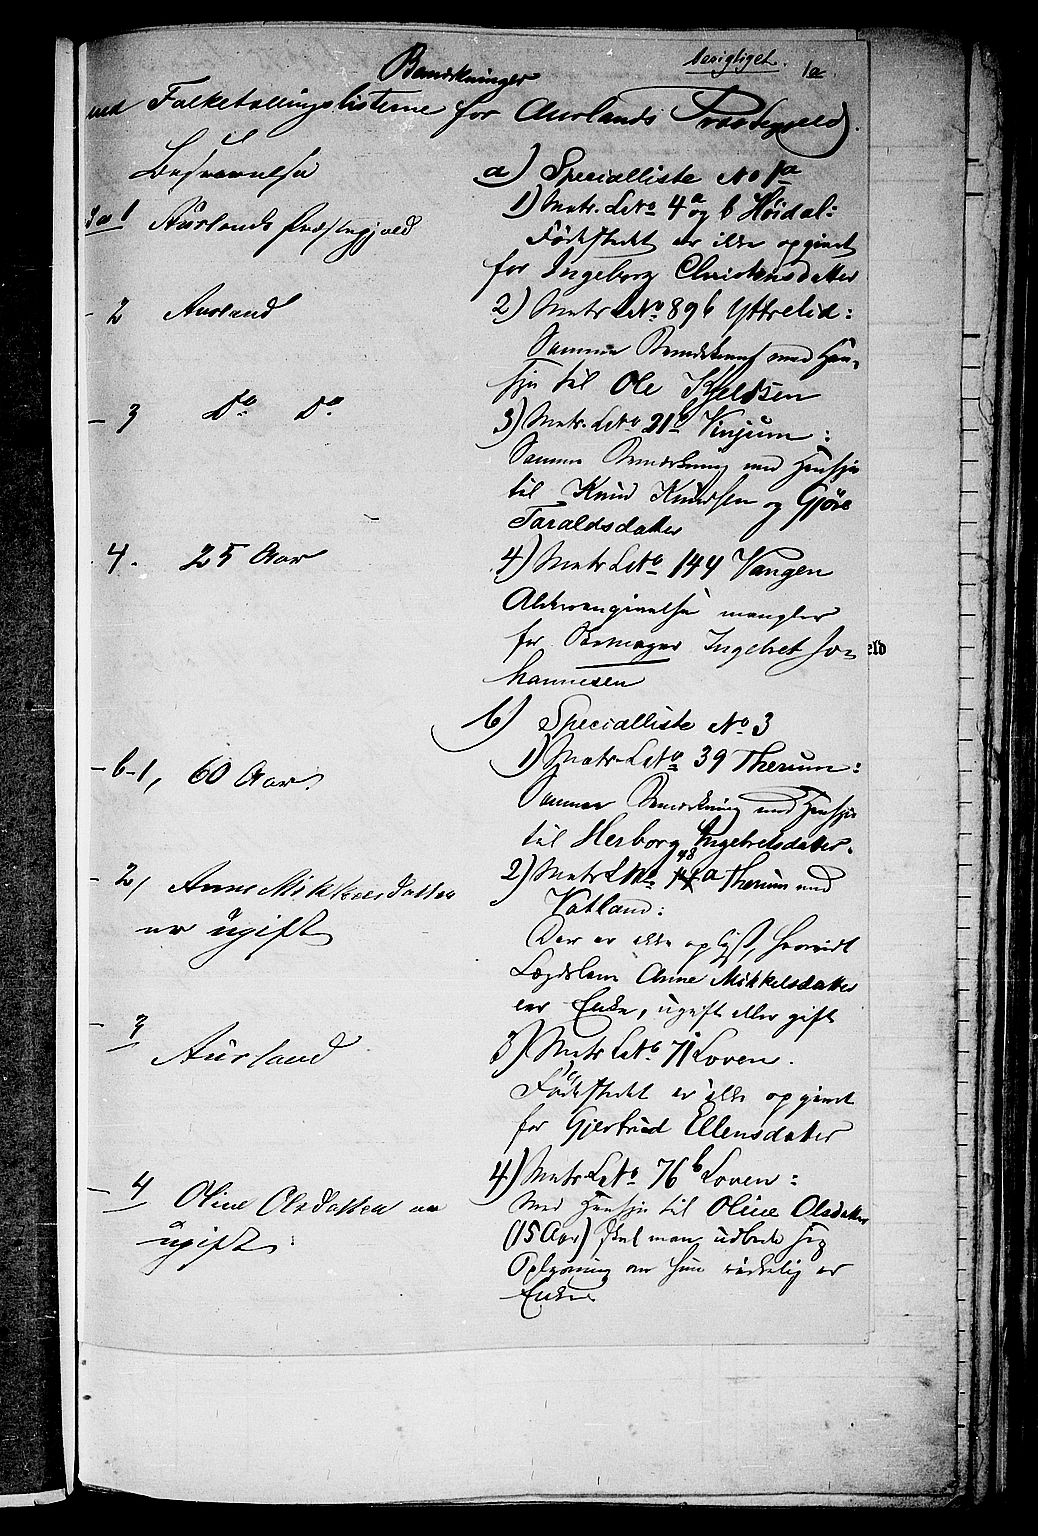 berigtiget. 1a
Bemærkninger
ved Folketællingslisterne for Aurlands Præstegjeld.
Besvarelse
a) Specialliste No 1a
1) Matr. L. No 4a og b Höidal:
ad a 1 Aurlands Præstegjæld
Födestedet er ikke opgivet
for Ingeborg Christensdatter
- 2 Aurland
2) Matr L. No 89b Yttrelid:
Samme Bemærkning med Hen-
syn til Ole Kjeldsen
- 3 Do Do
3) Matr. L. No 21b Vinjum:
Samme Bemærkning med Hensyn
til Knud Knudsen og Gjöre
Taraldsdatter
4. 25 Aar
4) Matr L. No 144 Vangen
Aldersangivelse mangler
for Skomager Ingebret Jo-
hannesen
b) Specialliste No 3
1) Matr. L. No 39 Therum:
- b-1, 60 Aar.
Samme Bemærkning med Hensyn
til Herborg Ingebretsdatter.
- 2, Anne Mikkelsdatter
2) Matr L No 48a Therum med
Vatland:
er ugift
Der er ikke oplyst, hvorvidt
Lægdslem Anne Mikkelsdatter
er Enke, ugift eller gift
- 3 Aurland
3) Matr L. No 71 Loven.
Födestedet er ikke opgivet
for Gjertrud Ellensdatter
4) Matr. L. No 76b Loven:
- 4 Oline Olsdatter er
Med Hensyn til Oline Olsdatter
ugift.
(15 Aar) skal man udbede sig
Oplysning om hun virkelig er
Enke.
eld